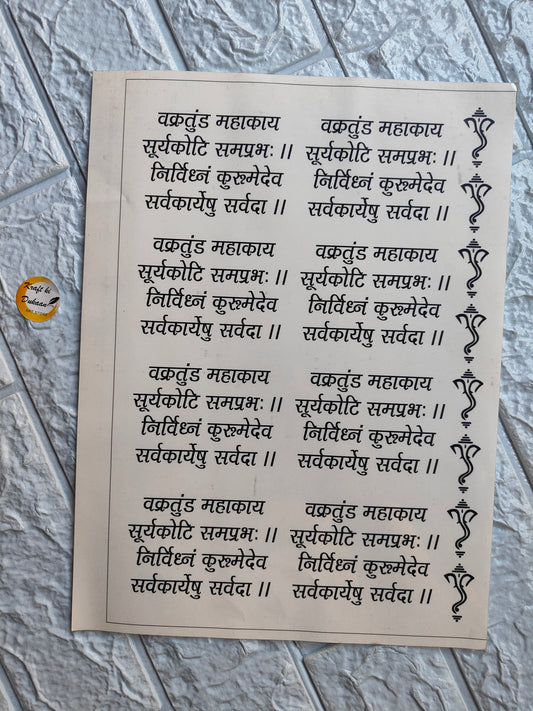 वक्रतुंड महाकाय
सूर्यकोटि समप्रभः ||
निर्विध्नं कुरूमेदेव
सर्वकार्येषु सर्वदा ||
वक्रतुंड महाकाय
सूर्यकोटि समप्रभः ||
निर्विध्नं कुरूमेदेव
सर्वकार्येषु सर्वदा ||
वक्रतुंड महाकाय
सूर्यकोटि समप्रभः ||
निर्विध्नं कुरूमेदेव
सर्वकार्येषु सर्वदा ||
वक्रतुंड महाकाय
सूर्यकोटि समप्रभः ||
निर्विध्नं कुरूमेदेव
सर्वकार्येषु सर्वदा ||
वक्रतुंड महाकाय
सूर्यकोटि समप्रभः ||
निर्विध्नं कुरूमेदेव
सर्वकार्येषु सर्वदा ||
वक्रतुंड महाकाय
सूर्यकोटि समप्रभः ||
निर्विध्नं कुरूमेदेव
सर्वकार्येषु सर्वदा ||
वक्रतुंड महाकाय
सूर्यकोटि समप्रभः ||
निर्विध्नं कुरूमेदेव
सर्वकार्येषु सर्वदा ||
वक्रतुंड महाकाय
सूर्यकोटि समप्रभः ||
निर्विध्नं कुरूमेदेव
सर्वकार्येषु सर्वदा ||
Kraft ki
Dukaan